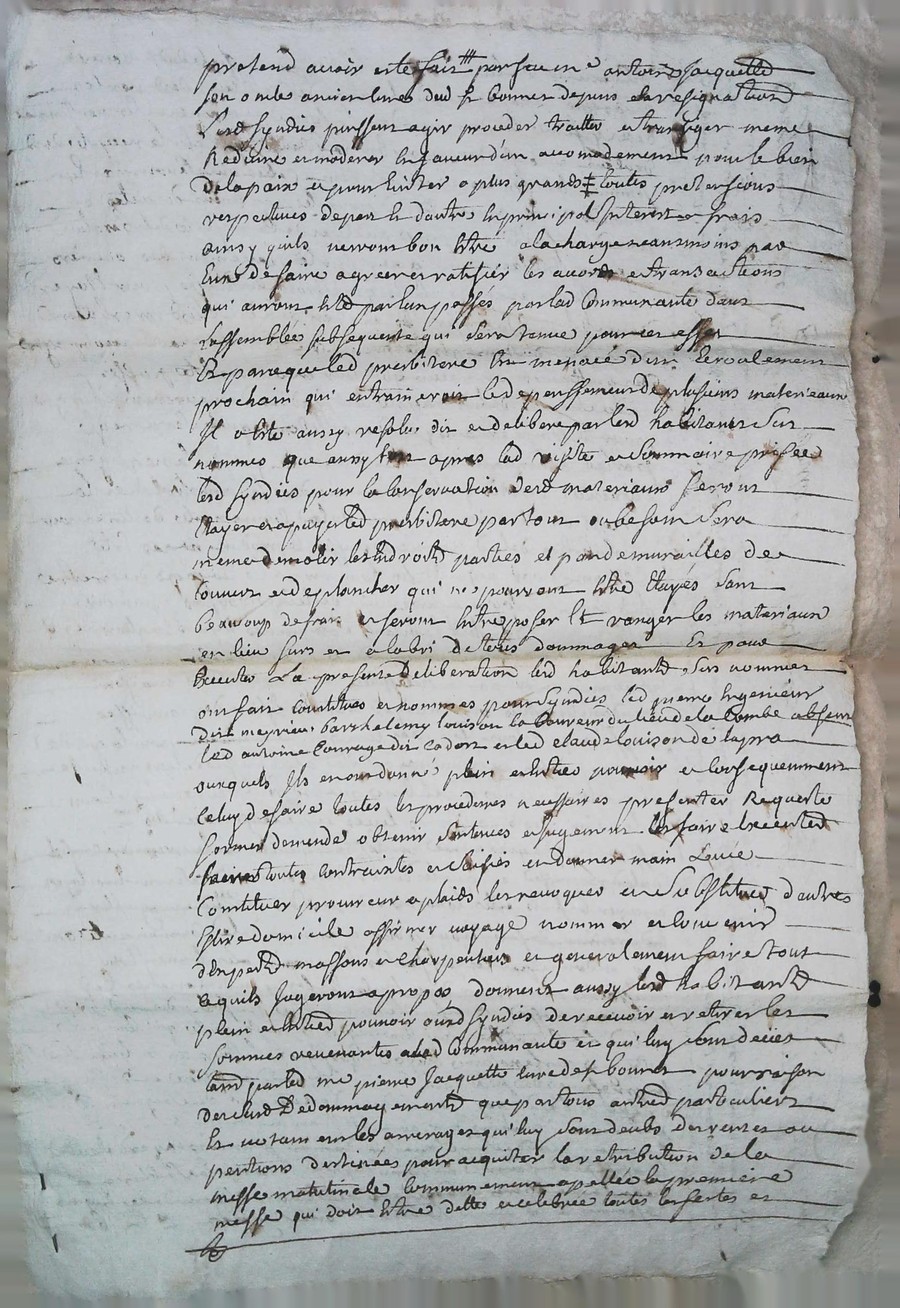 pretend avoir esté fait par feu me antoine Jacquette
son oncle ancien curé dud St Bonnet depuis sa resignation
lesd syndics puissent agir proceder traitter et transiger meme
Reduire et moderer en faveur d'un accomodement pour le bien
de la paix et pour eviter a plus grands toutes pretensions
respectives de part et d'autre en principal Interest et frais
ainsy quils verront bon estre a la charge neanmoins par
Eux de faire agreer et ratiffier les accords et transactions
qui auront esté par eux passés par lad Communauté dans
l'assemblée subsequente qui sera tenue pour cet effet
Et parceque led presbitere est menacé d'un Ecroulement
prochain qui entraineroit le deperissement de plusieurs materieaux
Il a esté aussy resolu dit et deliberé par lesd habitants sus
nommés que aussytost apres lad visitte et sommaire prisée
lesd syndics pour la Conservation desd materiaux feront
Etayer et apuyer led presbitere partout ou besoin sera
meme demolir lesd droits parties et pand de murailles de
couvert et de plancher qui ne pourront estre Etayés sans
beaucoup de frais et feront entreposer Et ranger les materiaux
en lieu surs et a labri de tous dommages Et pour
Executer La presente deliberation lesd habitants sus nommés
ont fait constitués et nommés pour syndics led pierre Ingenieur
dit meyrieu barthelemy louison laboureur du lieu de la Combe absent
led antoine Courage dit cadort et led claude louison de lapra
auxquels Ils en ont donné plein et entier pouvoir et Consequemment
Celuy de faire toutes les procedures necessaires presenter Requeste
former demande obtenir sentences et Jugement les faire Executer
faire toutes contraintes et saisies en donner main Levée
Constituer procureur a plaids les revoquer en substituer d'autres
Eslire domicile affirmer voyage nommer et convenir
d'Experts massons et charpentiers et generalement faire tout
ce quils Jugeront a propos, donnent aussy lesd habitants
plein et entier pouvoir auxd syndics de recevoir et retirer les
sommes revenantes a lad Communauté et qui luy sont deües
tant par led me pierre Jacquette curé de st bonnet pour raison
desd dedommagements que par tous autres particuliers
Et notamment les arrerages qui luy sont deubs des rentes ou
pentions destinées pour acquiter la retribution de la
messe matutinale Communement apellée la premiere
messe qui doit estre ditte et celebrée toutes les festes et